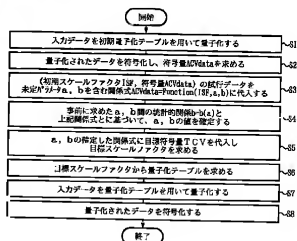 開始
入力データを初期量子化テーブルを用いて量子化する
S1
量子化されたデータを符号化し、符号量ACVdataを求める
S2
(初期スケールファクタISF, 符号量ACVdata)の試行データを
未定パラメータa, bを含む関係式ACVdata=Function(ISF,a,b)に代入する
S3
事前に求めたa, b間の統計的関係b=b(a)と
上記関係式とに基づいて、a, bの値を確定する
S4
a, bの確定した関係式に目標符号量TCVを代入し
目標スケールファクタを求める
S5
目標スケールファクタから量子化テーブルを求める
S6
入力データを量子化テーブルを用いて量子化する
S7
量子化されたデータを符号化する
S8
終了